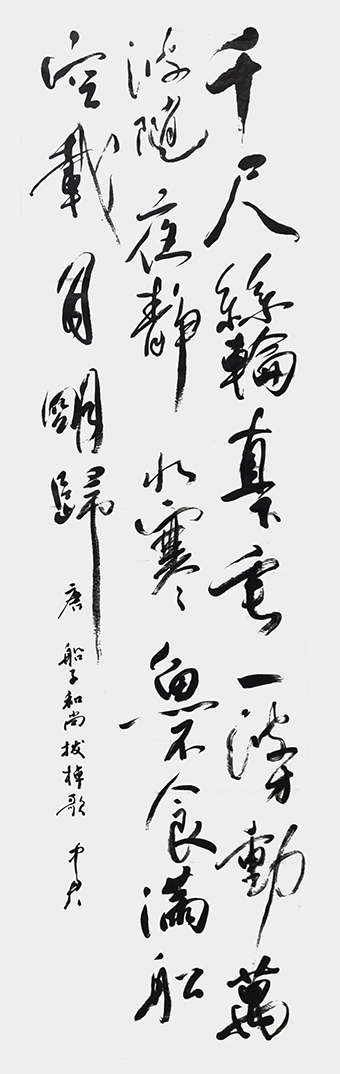 千尺絲輪直下垂一波才動萬
波隨夜靜水寒魚不食滿船
空載月明歸
唐 船子和尚拨棹歌